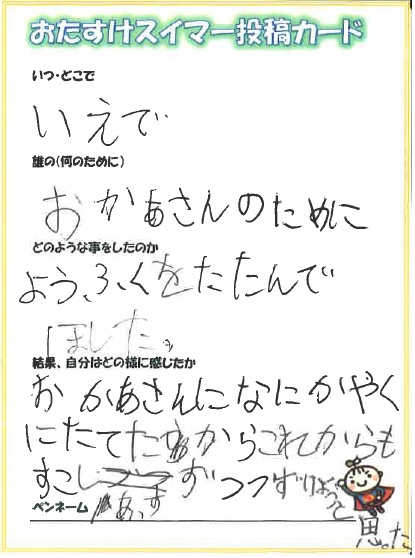 おたすけスイマー投稿カード
いつ・どこで
いえで
誰の(何のために)
おかあさんのために
どのような事をしたのか
ようふくをたたんで
ほした。
結果、自分はどの様に感じたか
おかあさんになにかやく
にたてたからこれからも
すこしずつつづけようと思った
ペンネーム